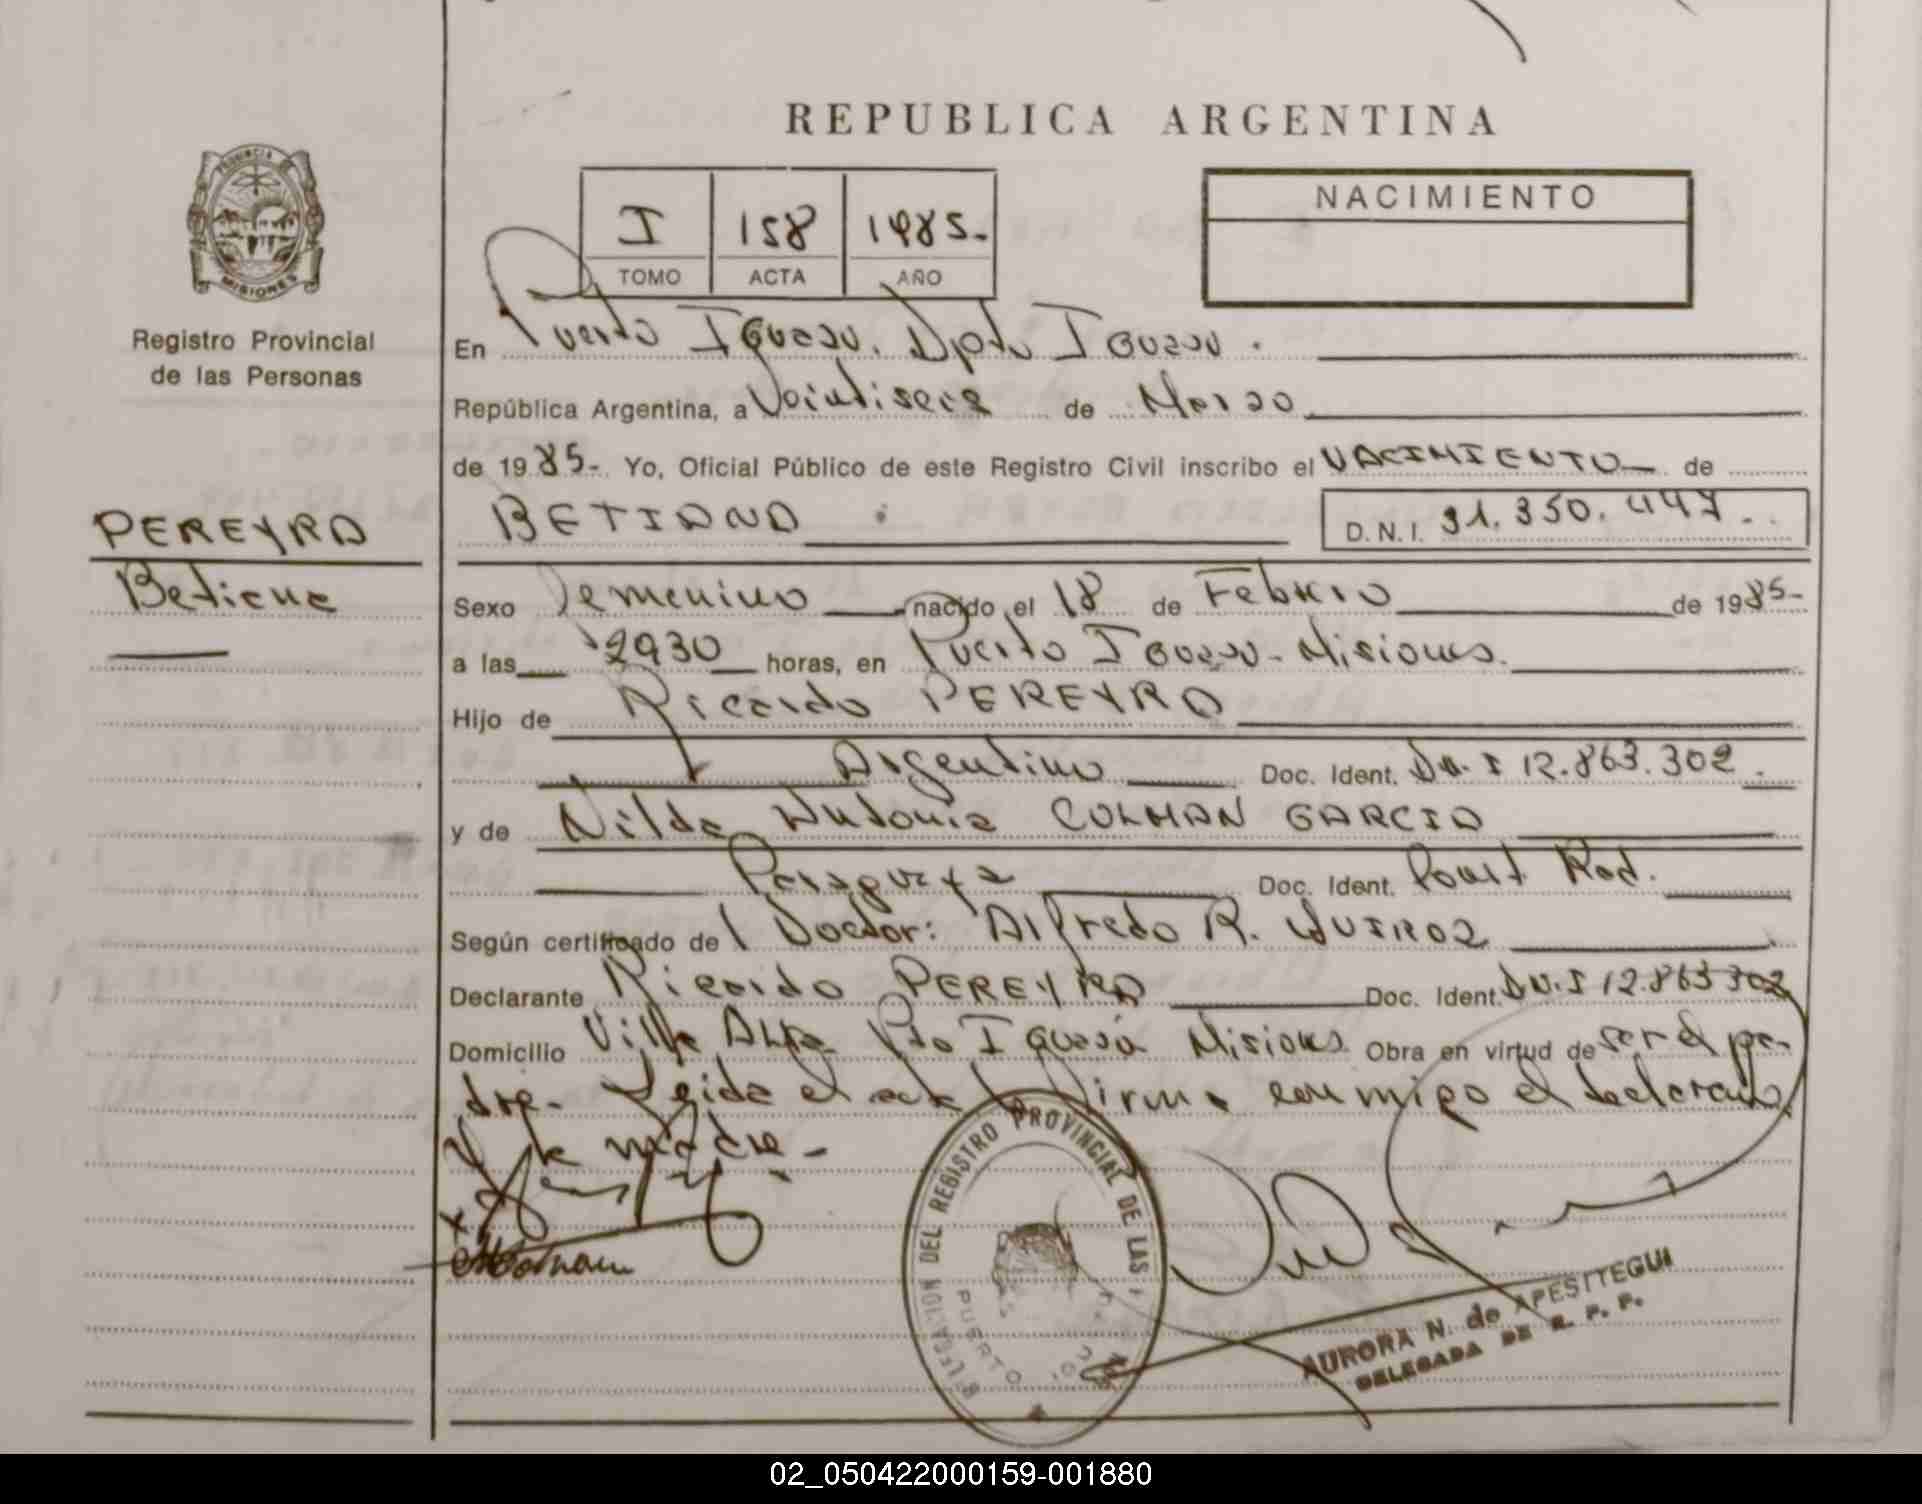 REPUBLICA ARGENTINA
PROVINCIA DE
MISIONES
Registro Provincial
de las Personas
I 158 1985-
TOMO ACTA AÑO
NACIMIENTO
En Puerto Iguazu. Dpto Iguazu.
República Argentina, a Veintiseis de Marzo
de 1985-. Yo, Oficial Público de este Registro Civil inscribo el NACIMIENTO de
PEREYRA
Betiana
BETIANA
D.N.I. 31.350.447-
Sexo Femenino nacido el 18 de Febrero de 1985-
a las 2930 horas, en Puerto Iguazu - Misiones.
Hijo de Ricardo PEREYRA
Argentino Doc. Ident. DN.I 12.863.302.
y de Nilda Antonia COLMAN GARCIA
Paraguaya Doc. Ident. Rad.
Según certificado de Doctor: Alfredo R. QUIROZ
Declarante Ricardo PEREYRA Doc. Ident. DN.I 12.863302
Domicilio Villa Alta Pto Iguazú Misiones Obra en virtud de ser el pa-
dre- Leida el acta firma conmigo el declarante
y la madre-
DELEGACION DEL REGISTRO PROVINCIAL DE LAS
PUERTO
AURORA N. de APESITEGUI
DELEGADA DE R. P. P.
02_050422000159-001880